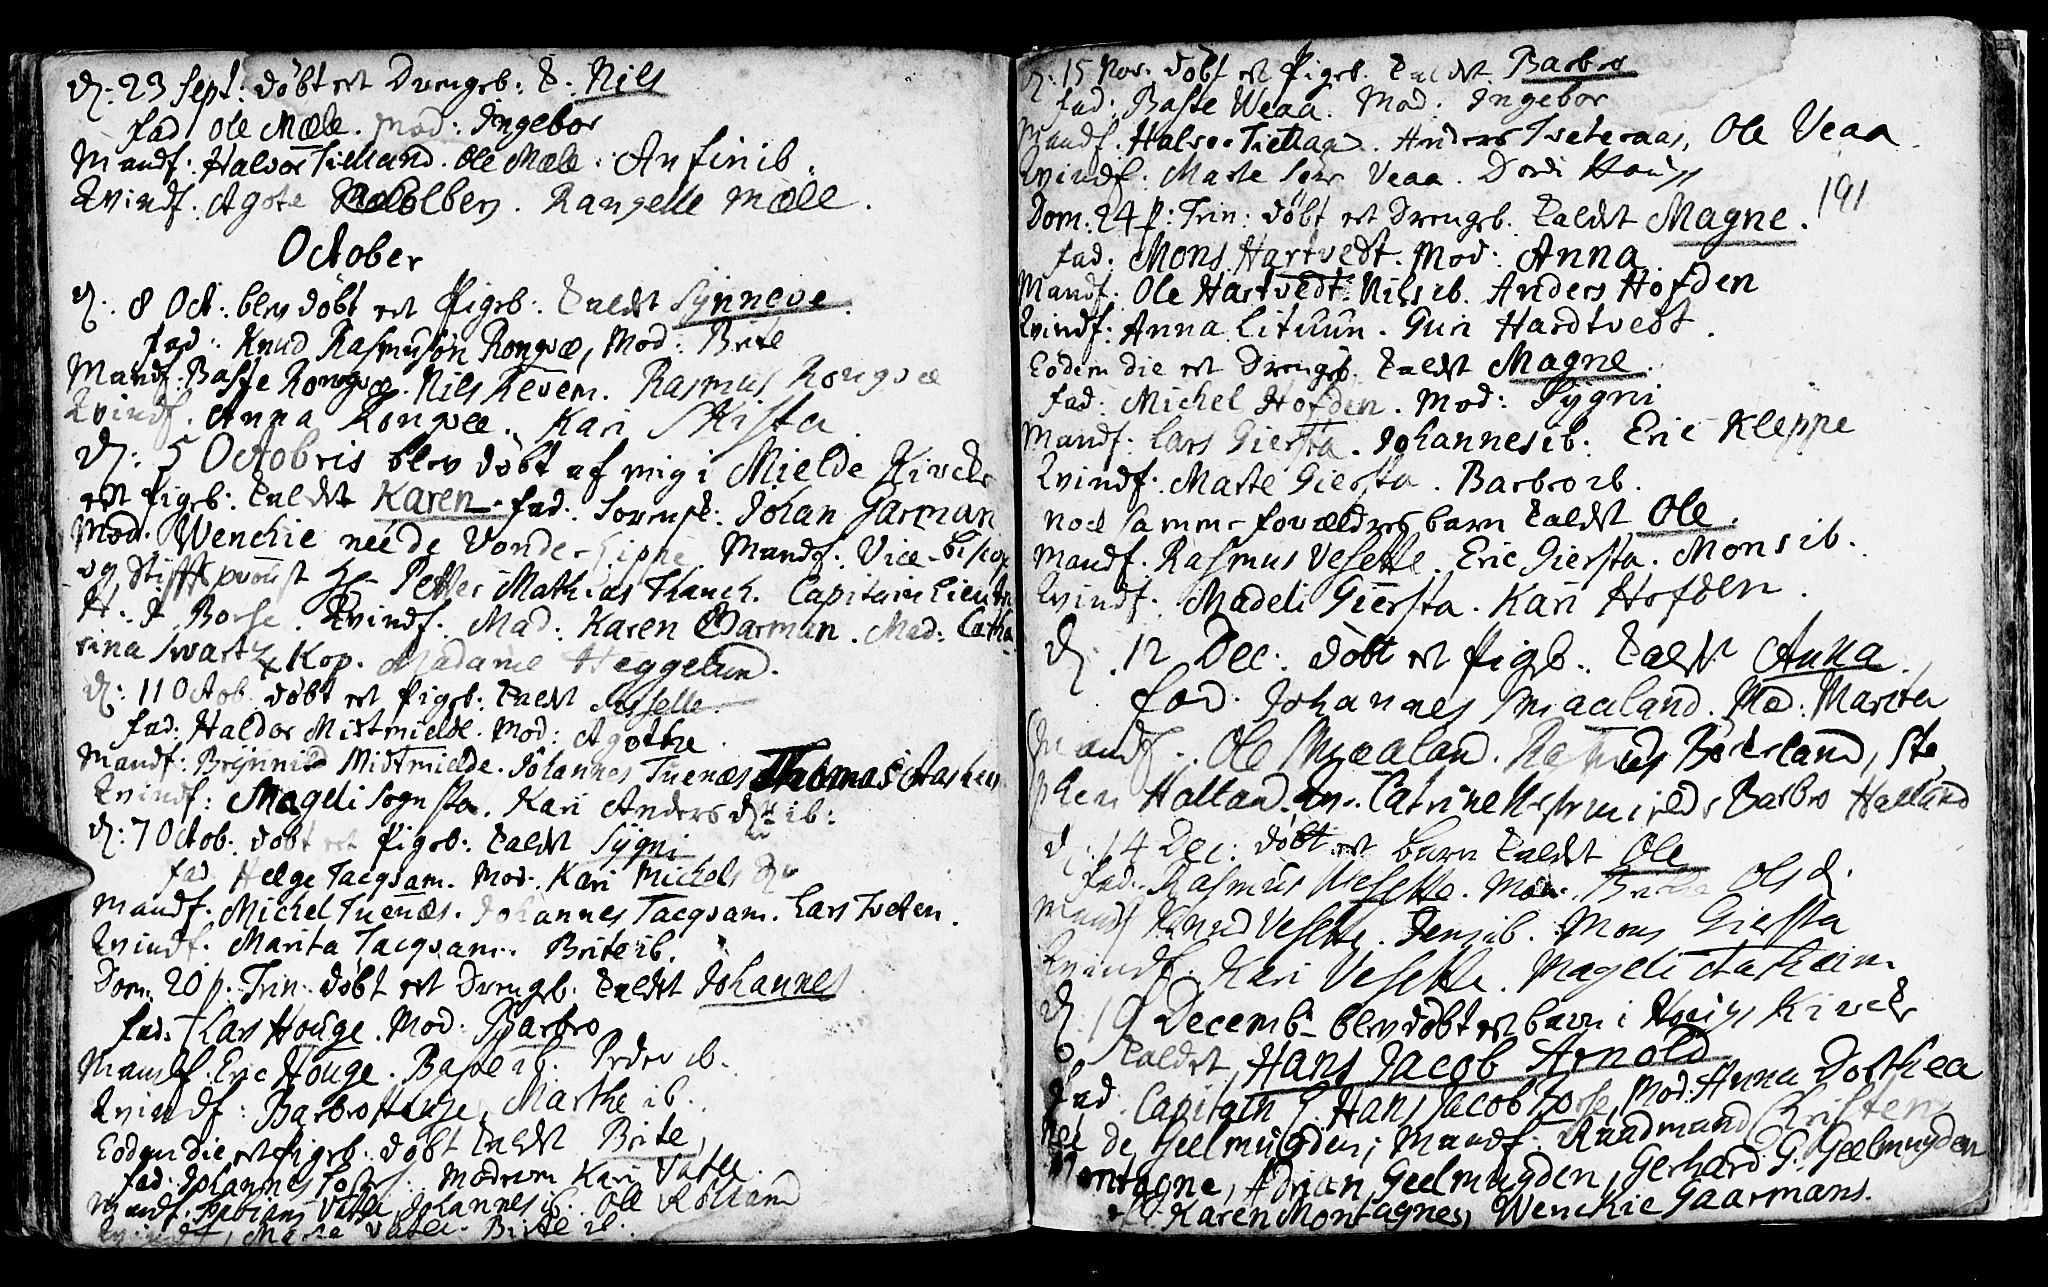 d: 23 Sept: døbt et Drengeb: k. Nils
fad Ole Mæle. Mod: Ingebor
Mandf: Halvor Tielland. Ole Mæle. Anfin ib.
Qvindf. Agote Rangelle Mæle.
October
d. 8 Oct. blev døbt et Pigeb: kaldet Synneve.
fad: Knud Rasmuson Rongvæ, Mod: Brite
Mandf: Baste Rongvæ. Nils Revem. Rasmus Rongvæ
Qvindf. Anna Rongvæ. Kari
d: 5 Octobris blev døbt af mig i Mielde Kircke
et Pigeb: kaldet Karen. fad: Sorensk: Johan Garman
Mod. Wenchie neé de Vonde Mandf. Vice-Bisкop
og Stifftsprovst Hr Petter Mathias Capitain Lieutn
H. J. Borse. Qvindf. Mad: Karen Garman. Mad: Catha
rina Swartz Kop. Madame Heggelund.
d: 11 Octob døbt et Pigeb: kaldet Asselle.
fad: Haldor Mitmielde. Mod: Agothe.
Mandf: Brynnild Midtmielde. Johannes Tuenæs Thomas Aasheim
Qvindf: Mageli Sognsta. Kari Anders dtr ib:
d: 7 Octob. døbt et Pigeb: kaldet Sygni
fad Helge Tacqvam. Mod. Kari Michels dtr
Mandf. Michel Tuenæs. Johannes Tacqvam. Lars Tveten.
Qvindf. Marita Tacqvam. Brite ib.
Dom. 20 p. Trin. døbt et Drengeb. kaldet Johannes
fad. Lars Houge. Mod: Barbro
Mandf. Eric Houge. Baste ib. Peder ib.
Qvindf: Barbro Houge, Marthe ib.
Eodem die et Pigeb. døbt kaldet Brite,
fad. Johannes Moderen Kari Vatle.
Mandf. Fabians Vatle Johannes ib. Ole Rolland
Qvindf, Marta Vatle. Brite ib.
d: 15 Nov. døbt et Pigeb. kaldet Barbro
fad: Baste Weaa. Mod: Ingebor
Mandf. Halvor Tiettaa. Anders Tveteraas, Ole Veaa
Qvindf: Marte Veaa. Dordi Houg
191
Dom. 24 p: Trin: døbt et Drengeb. kaldet Magne.
fad. Mons Hartvedt. Mod: Anna
Mandf: Ole Hartvedt. Nils ib. Anders Hofden
Qvindf: Anna Lituun. Guri Hardtvedt.
Eodem die et Drengeb. kaldet Magne.
fad: Michel Hofden. Mod: Sygni
Mandf. Lars Giersta. Johannes ib. Eric Kleppe
Qvindf: Marte Giersta. Barbro ib.
nock samme forældres barn kaldet Ole.
Mandf. Rasmus Vesette. Eric Giersta. Mons ib.
Qvindf. Mædeli Giersta. Kari Hofden.
d. 12 Dec. døbt et Pigeb. kaldet Anna.
fad. Johannes Smaaland. Mod: Marita
Mandf. Ole Myraland. Rasmus Børdeland, Ste
phen Halland. Qv. Catrine Barbro Halland
d. 14 Dec: døbt et barn kaldet Ole
fad. Rasmus Vesette. Mod. Brite Ols d.
Mandf Knud Vesette. Jens ib. Mons Giersta
Qvindf. Kari Vesette. Mageli Aasheim
d. 19 Decemb. blev døbt et barn i Houg Kircke
kaldet, Hans Jacob Arnold
fad. Capitain H. Hans Jacob Borse, Mod: Anna Dorthea
neé de Geelmuyden; Mandf. Raadmand Christen
Montagne, Adrian Geelmuyden, Gerhard G. Geelmuyden
Karen Montagnes, Wenchie Gaarmans.